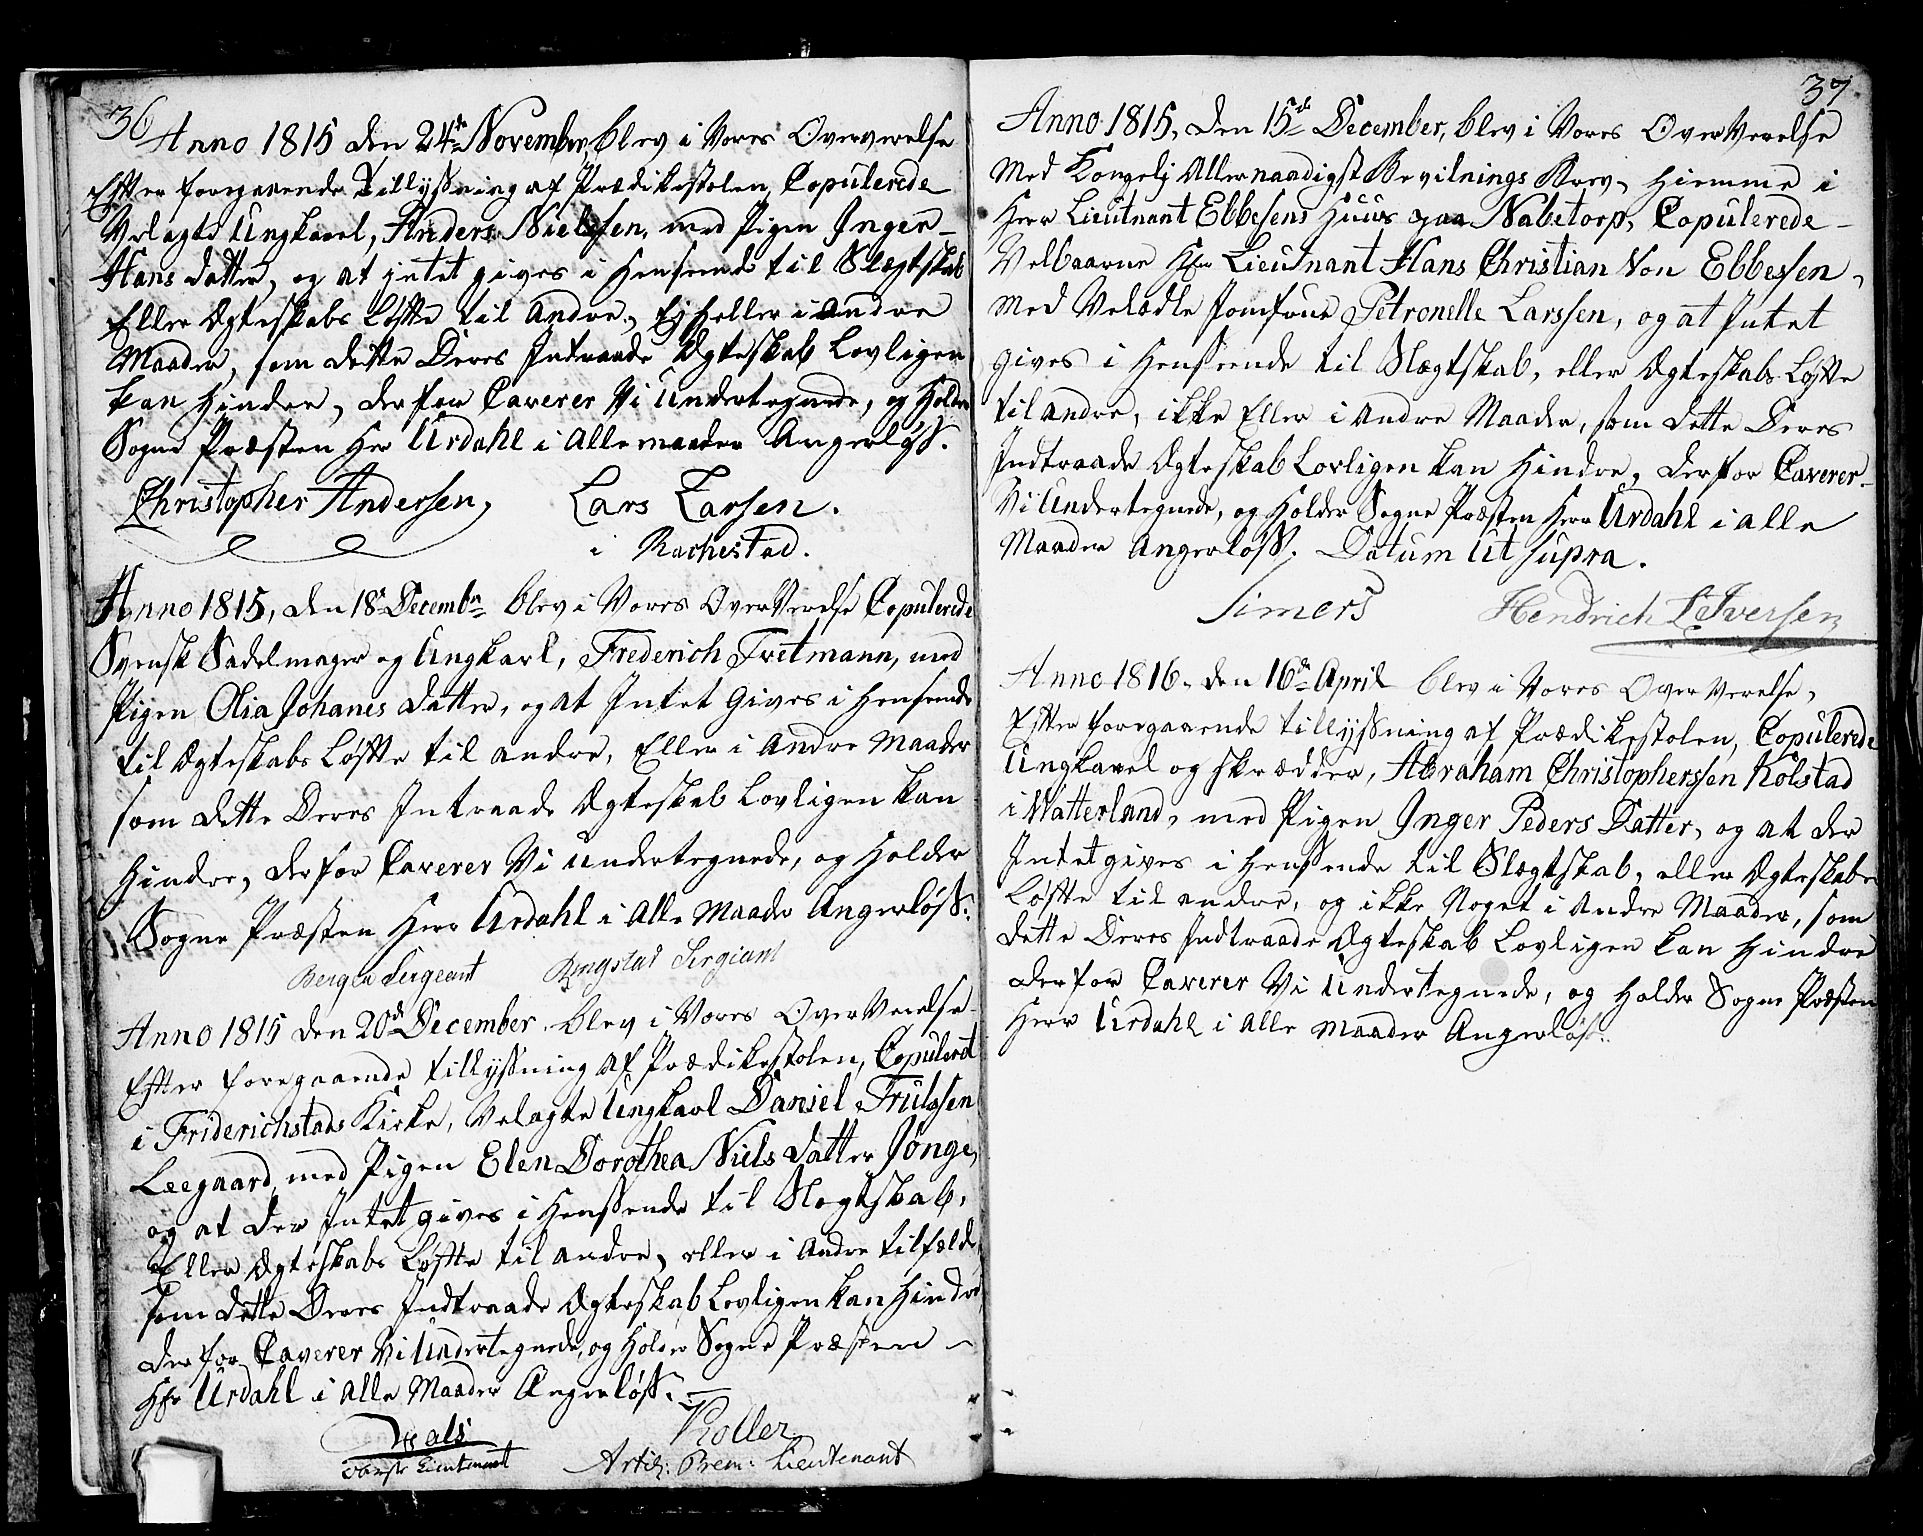 36
Anno 1815 den 24de November, blev i Vores Oververelse
Efter foregaaende Tillyßning af Prædikestolen, Copulerede
Velagte Ungkarl, Anders Nielsen, med Pigen Inger
Hans datter, og at intet gives i Henseende til Slægtskab
Eller Ægteskabs Løfte til Andre, Ej heller i Andre
Maader, som dette Deres Intraade Ægteskab Lovligen
kan Hindre, derfor Caverer Vi Undertegnede, og Holder
Sogne Præsten Her Urdahl i Alle maader Angerløss.
Christopher Andersen, Lars Larsen.
i Rachestad.
Anno 1815, den 18de Decembr blev i Vores OverVerelse Copulerede
Svensk Sadelmager og Ungkarl, Frederich Tretmann, med
Pigen Olia Johanes datter, og at Intet Gives i Henseende
til Ægteskabs Løfte til andre, Eller i Andre Maader
som dette Deres Intraade Ægteskab Lovligen kan
Hindre, derfor Caverer Vi Undertegnede, og Holder
Sogne Præsten Herr Urdahl i Alle Maader Angerløss.
Bergen Sergeant Ringstad Sergiant
Anno 1815 den 20de December blev i Vores OverVerelse
Efter foregaaende tillyßning af Prædikestolen, Copuleret
i Friderichstads Kirke, Velagte Ungkarl Daniel Trulssen
Leegaard, med Pigen Elen Dorothea Niels datter Jonge,
og at der Intet gives i Henßende til Slægtskab,
Eller Ægteskabs Løfte til andre, eller i Andre tilfælde,
som dette Deres Indtraade Ægteskab Lovligen kan Hindre
derfor Caverer Vi Undertegnede, og Holder Sogne Præsten
Hr Urdahl i Alle Maader Angerløss.
Lieutenant Artil: Prem: Lieutenant
37
Anno 1815, den 15de December, blev i Vores OverVerelse
Med Kongelig Allernaadigst Bevilnings Brev, Hiemme i
Herr Lieutnant Ebbesens Huus paa Nabetorp, Copulerede
Velbaarne Hr Lieutnant Hans Christian Von Ebbesen,
med Velædle Jomfrue Petronelle Larssen, og at Intet
gives i Henseende til Slægtskab, eller Ægteskabs Løfte
til andre, ikke Eller i Andre Maader, som dette Deres
Indtraade Ægteskab Lovligen kan Hindre, derfor Caverer
Vi Undertegnede, og Holder Sogne Præsten Herr Urdahl i Alle
Maader Angerløss. Datum Ut supra.
Simers Hendrich L Iversen
Anno 1816. den 16de April blev i Vores OverVerelse,
Efter foregaaende tillyßning af Prædikestolen, Copulerede
Ungkarl og Skrædder, Abraham Christopherssen Kolstad
i Vatterland, med Pigen Inger Peders Datter, og at der
Intet gives i Henßende til Slægtskab, eller Ægteskabs
Løfte til andre, og ikke Noget i Andre Maader, som
dette Deres Indtraade Ægteskab Lovligen kan Hindre
derfor Caverer Vi Undertegnede, og Holder Sogne Præsten
Herr Urdahl i Alle Maader Angerløss.